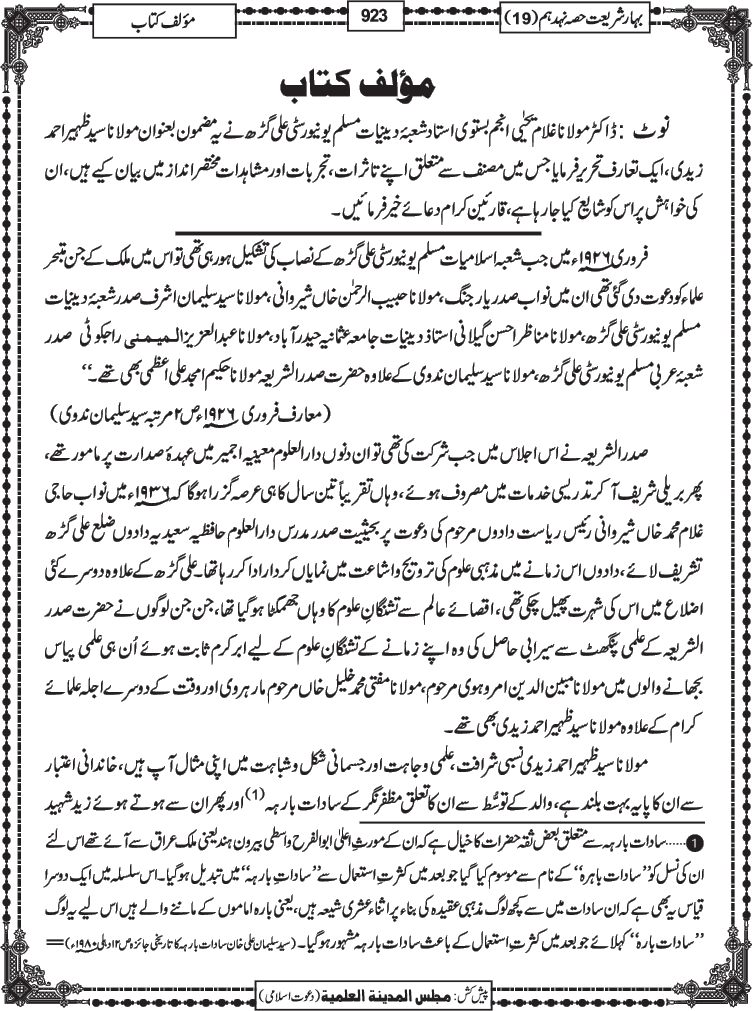 بہارِ شریعت حصہ نہدہم (19)
923
مؤلف کتاب
مؤلف کتاب
نوٹ : ڈاکٹر مولانا غلام یحیٰی انجم بستوی استاد شعبۂ دینیات مسلم یونیورسٹی علی گڑھ نے یہ مضمون بعنوان مولانا سید ظہیر احمد
زیدی، ایک تعارف تحریر فرمایا جس میں مصنف سے متعلق اپنے تاثرات، تجربات اور مشاہدات مختصر انداز میں بیان کیے ہیں، ان
کی خواہش پر اس کو شایع کیا جا رہا ہے، قارئین کرام دعائے خیر فرمائیں۔
فروری ۱۹۲۶ء میں جب شعبہ اسلامیات مسلم یونیورسٹی علی گڑھ کے نصاب کی تشکیل ہو رہی تھی تو اس میں ملک کے جن متبحر
علماء کو دعوت دی گئی تھی ان میں نواب صدر یار جنگ، مولانا حبیب الرحمٰن خاں شیروانی، مولانا سید سلیمان اشرف صدر شعبۂ دینیات
مسلم یونیورسٹی علی گڑھ، مولانا مناظر احسن گیلانی استاذ دینیات جامعہ عثمانیہ حیدر آباد، مولانا عبدالعزیز المیمنی راجکوٹی صدر
شعبۂ عربی مسلم یونیورسٹی علی گڑھ، مولانا سید سلیمان ندوی کے علاوہ حضرت صدر الشریعہ مولانا حکیم امجد علی اعظمی بھی تھے۔‘‘
(معارف فروری ۱۹۲۶ء ص ۲ مرتبہ سید سلیمان ندوی)
صدر الشریعہ نے اس اجلاس میں جب شرکت کی تھی تو ان دنوں دارالعلوم معینیہ اجمیر میں عہدۂ صدارت پر مامور تھے،
پھر بریلی شریف آ کر تدریسی خدمات میں مصروف ہوئے، وہاں تقریباً تین سال کا ہی عرصہ گزرا ہوگا کہ ۱۹۳۶ء میں نواب حاجی
غلام محمد خاں شیروانی رئیس ریاست دادوں مرحوم کی دعوت پر بحیثیت صدر مدرس دارالعلوم حافظیہ سعیدیہ دادوں ضلع علی گڑھ
تشریف لائے، دادوں اس زمانے میں مذہبی علوم کی ترویج و اشاعت میں نمایاں کردار ادا کر رہا تھا۔ علی گڑھ کے علاوہ دوسرے کئی
اضلاع میں اس کی شہرت پھیل چکی تھی، اقصائے عالم سے تشنگانِ علوم کا وہاں جھمگٹا ہوگیا تھا، جن جن لوگوں نے حضرت صدر
الشریعہ کے علمی پنگھٹ سے سیرابی حاصل کی وہ اپنے زمانے کے تشنگانِ علوم کے لیے ابرِ کرم ثابت ہوئے اُن ہی علمی پیاس
بجھانے والوں میں مولانا مبین الدین امروہوی مرحوم، مولانا مفتی محمد خلیل خاں مرحوم مارہروی اور وقت کے دوسرے اجلہ علمائے
کرام کے علاوہ مولانا سید ظہیر احمد زیدی بھی تھے۔
مولانا سید ظہیر احمد زیدی نسبی شرافت، علمی وجاہت اور جسمانی شکل و شباہت میں اپنی مثال آپ ہیں، خاندانی اعتبار
سے ان کا پایہ بہت بلند ہے، والد کے توسُّط سے ان کا تعلق مظفر نگر کے سادات بارہہ (1) اور پھر ان سے ہوتے ہوئے زید شہید
1 ......سادات بارہہ سے متعلق بعض ثقہ حضرات کا خیال ہے کہ ان کے مورثِ اعلیٰ ابوالفرح واسطی بیرون ہند یعنی ملک عراق سے آئے تھے اس لئے
ان کی نسل کو ’’سادات باہرہ‘‘ کے نام سے موسوم کیا گیا جو بعد میں کثرتِ استعمال سے ’’سادات بارہہ‘‘ میں تبدیل ہوگیا۔ اس سلسلہ میں ایک دوسرا
قیاس یہ بھی ہے کہ ان سادات میں سے کچھ لوگ مذہبی عقیدہ کی بناء پر اثناء عشری شیعہ ہیں، یعنی بارہ اماموں کے ماننے والے ہیں اس لیے یہ لوگ
’’سادات بارہ‘‘ کہلائے جو بعد میں کثرتِ استعمال کے باعث سادات بارہہ مشہور ہوگیا۔ (سید سلیمان علی خان سادات بارہہ کا تاریخی جائزہ ص ۱۲ دہلی ۱۹۸۰ء) =
پیش کش: مجلس المدینۃ العلمیۃ (دعوت اسلامی)